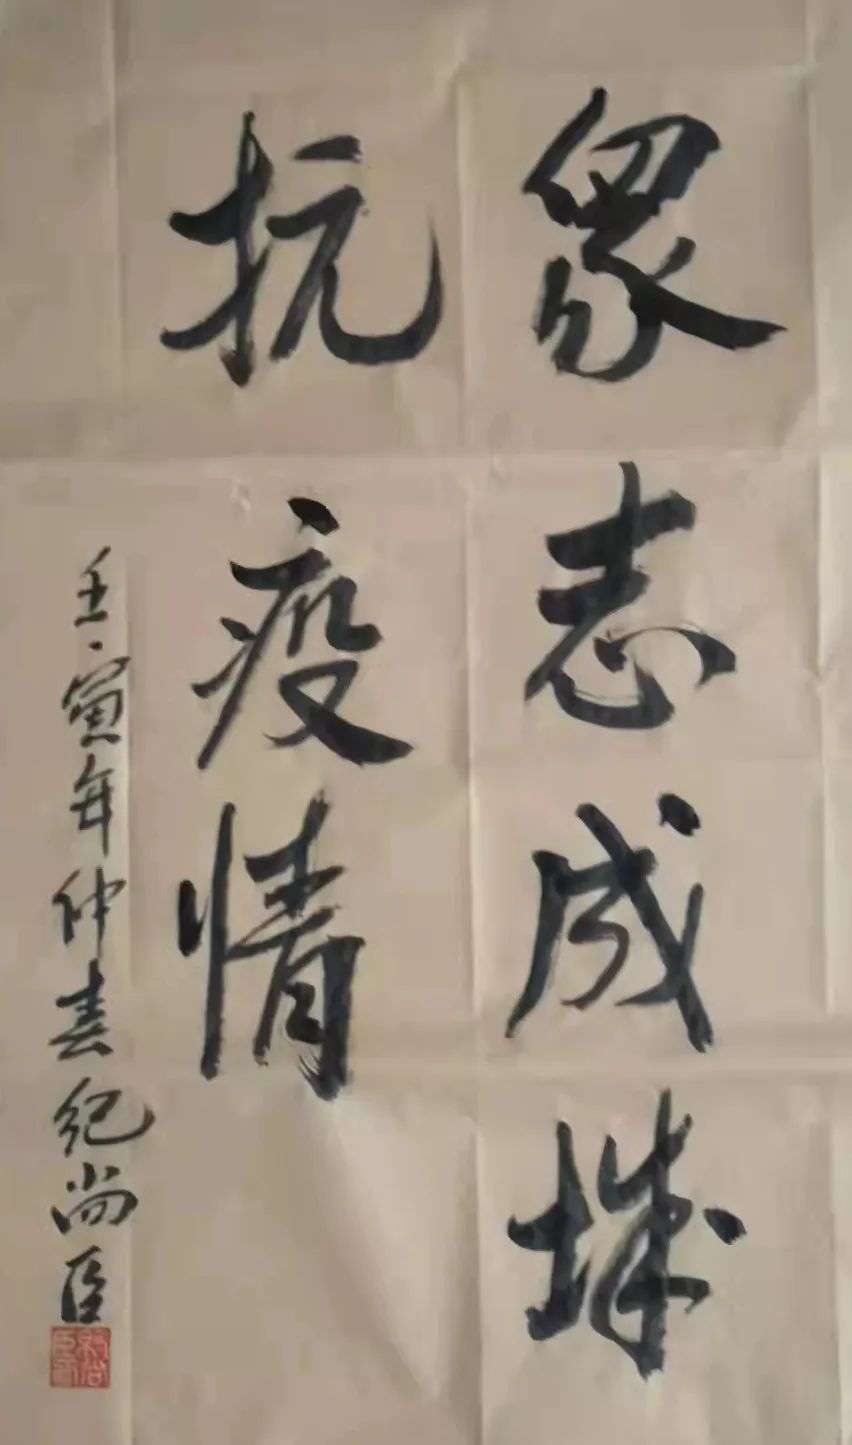 眾志成城
抗疫情
壬寅年仲春纪尚臣